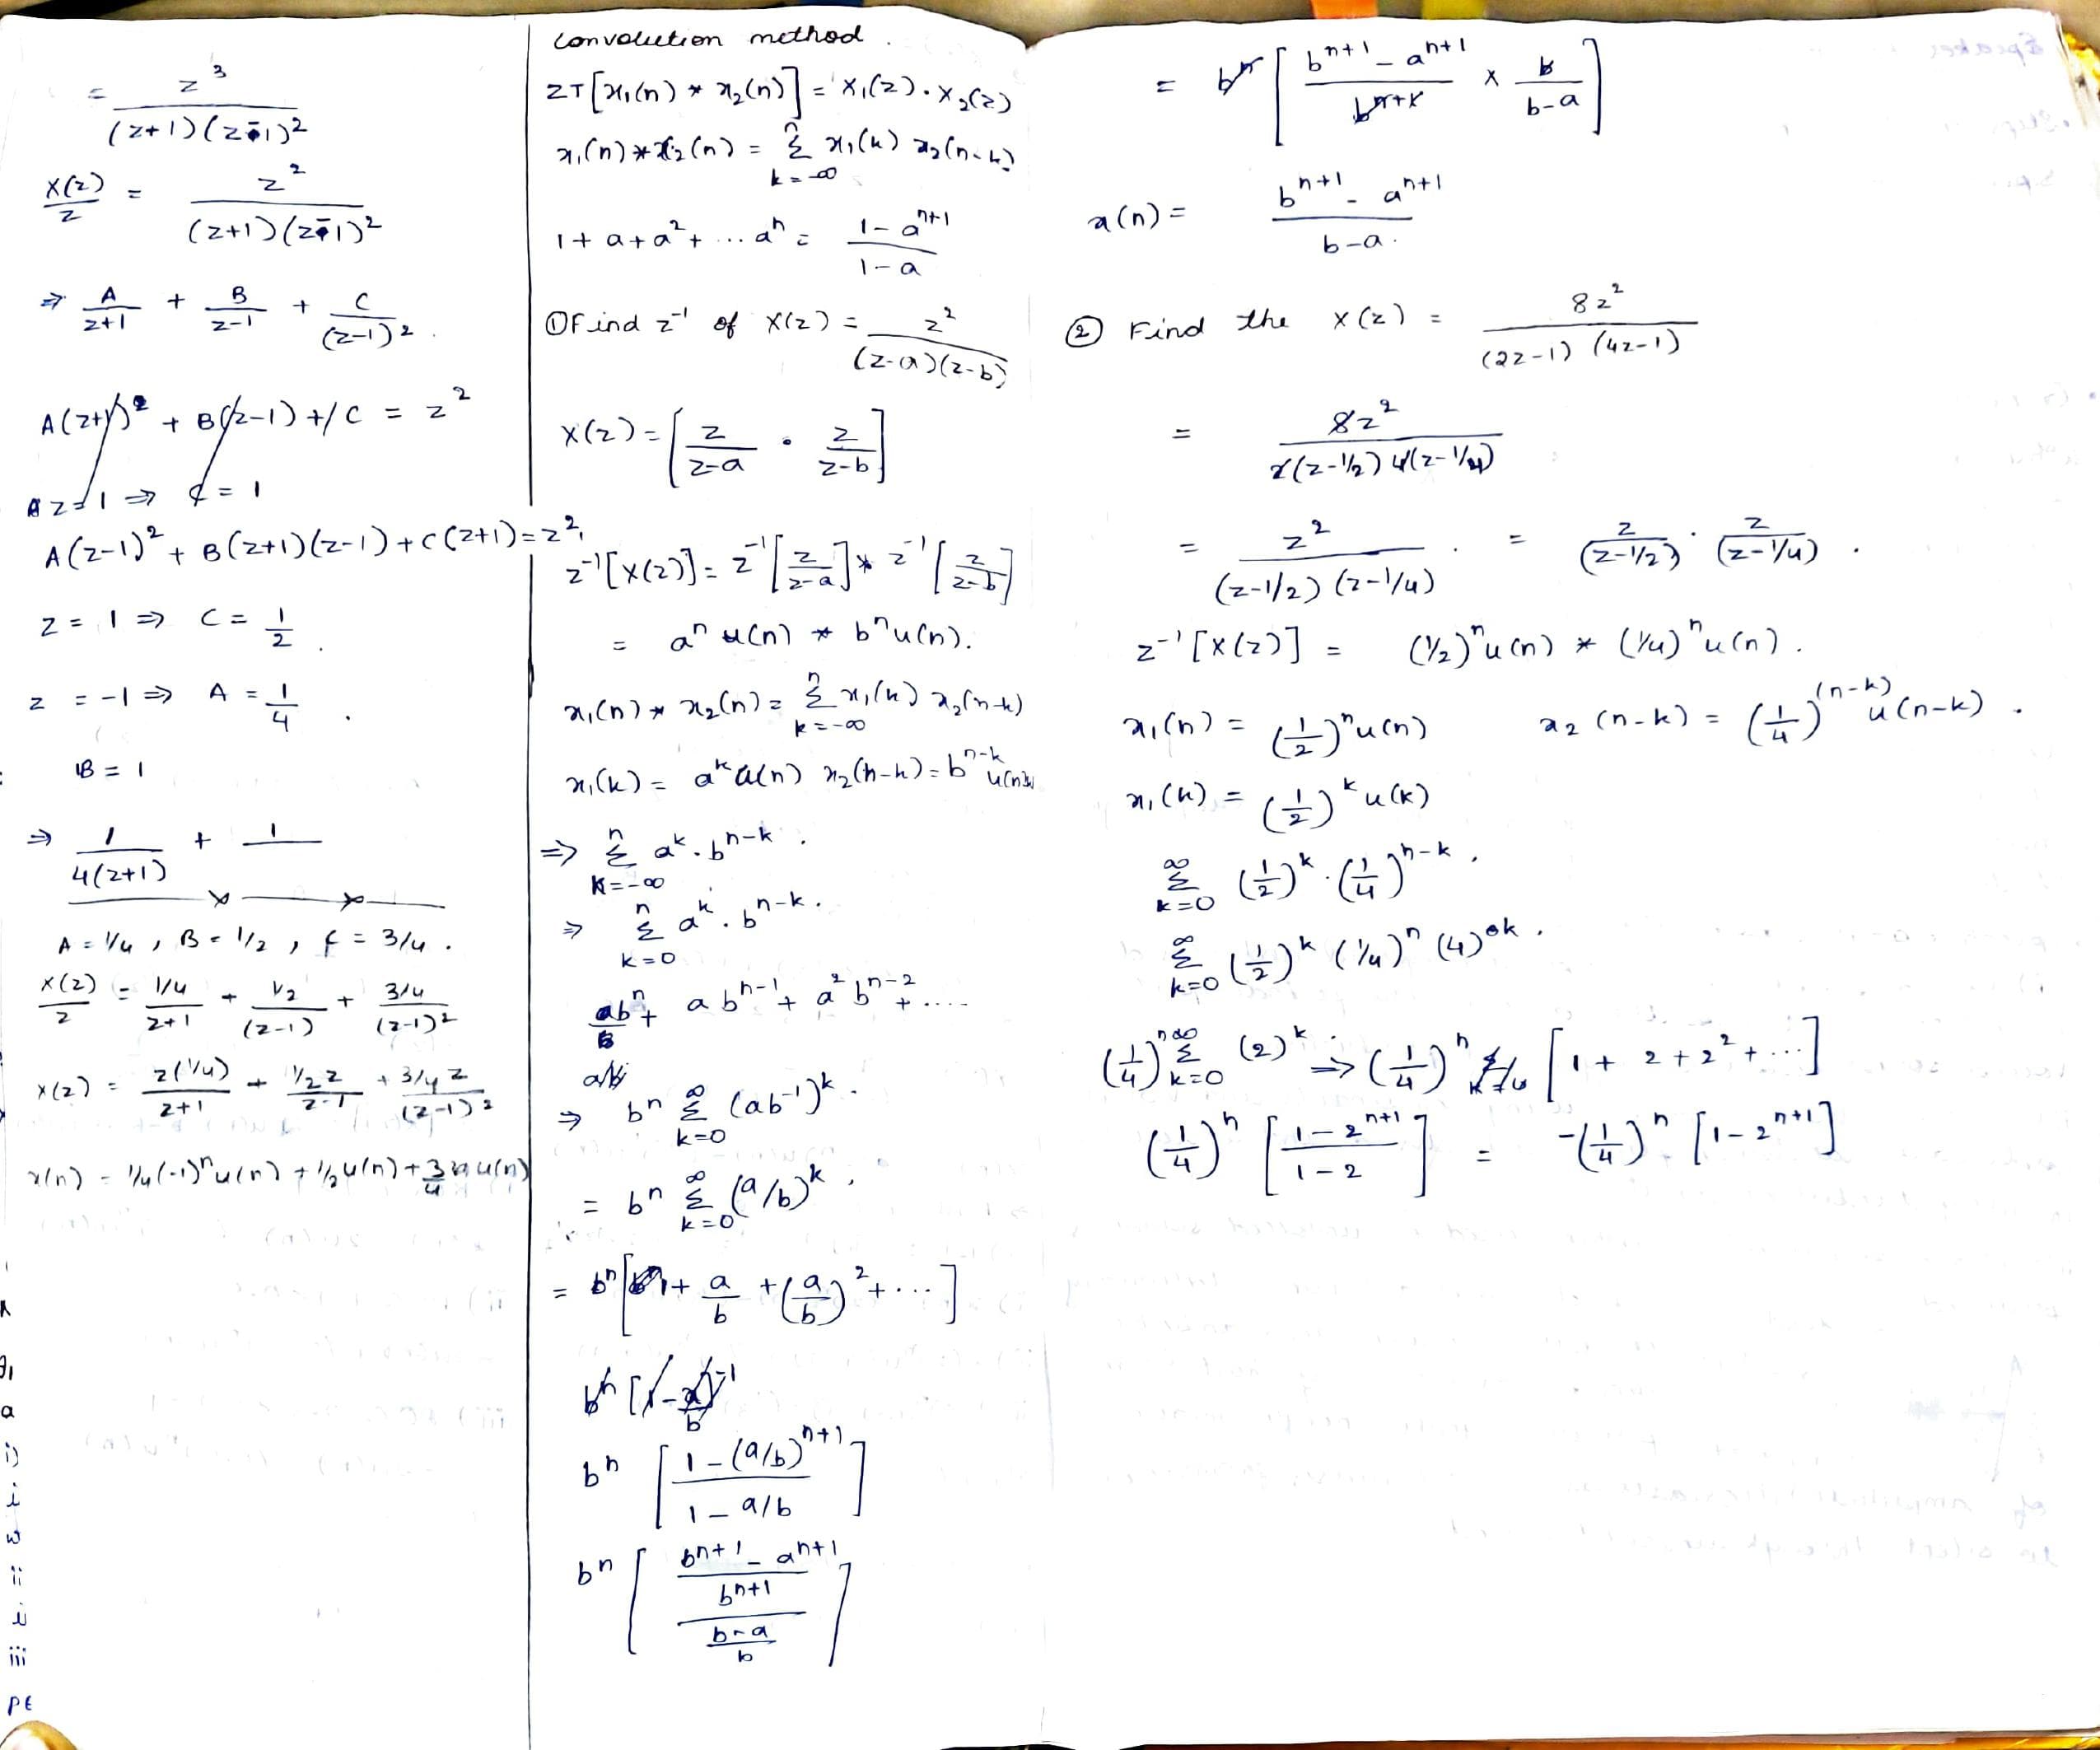 = z³ / (z+1)(z-1)²
X(z)/z = z² / (z+1)(z-1)²
⇒ A/(z+1) + B/(z-1) + C/(z-1)².
A(z+1)² + B(z-1) + C = z²
z=1 ⇒ C = 1
A(z-1)² + B(z+1)(z-1) + C(z+1) = z²
z = 1 ⇒ C = 1/2.
z = -1 ⇒ A = 1/4.
B = 1
⇒ 1/4(z+1) + 1/
A = 1/4, B = 1/2, C = 3/4.
X(z)/z = (1/4)/(z+1) + (1/2)/(z-1) + (3/4)/(z-1)²
X(z) = z(1/4)/(z+1) + (1/2 z)/(z-1) + (3/4 z)/(z-1)²
x(n) = 1/4(-1)ⁿu(n) + 1/2 u(n) + 3/4 n u(n)
i)
i
w
ii
ii
iii
PE
Convolution method.
ZT[x₁(n) * x₂(n)] = X₁(z).X₂(z)
x₁(n)*x₂(n) = Σ_{k=-∞}^{n} x₁(k) x₂(n-k)
1 + a + a² + ... aⁿ = (1-aⁿ⁺¹)/(1-a)
① Find z⁻¹ of X(z) = z²/(z-a)(z-b)
X(z) = [z/(z-a) . z/(z-b)]
z⁻¹[X(z)] = z⁻¹[z/(z-a)] * z⁻¹[z/(z-b)]
= aⁿ u(n) * bⁿu(n).
x₁(n) * x₂(n) = Σ_{k=-∞}^{n} x₁(k) x₂(n-k)
x₁(k) = aᵏ u(n) x₂(n-k) = bⁿ⁻ᵏ
⇒ Σ_{k=-∞}^{n} aᵏ.bⁿ⁻ᵏ.
⇒ Σ_{k=0}^{n} aᵏ.bⁿ⁻ᵏ.
abⁿ + abⁿ⁻¹ + a²bⁿ⁻² + ....
⇒ bⁿ Σ_{k=0}^{∞} (ab⁻¹)ᵏ.
= bⁿ Σ_{k=0}^{∞} (a/b)ᵏ.
= bⁿ[1 + a/b + (a/b)² + ...]
bⁿ[1 - a/b]⁻¹
bⁿ [(1-(a/b)ⁿ⁺¹)/(1-a/b)]
bⁿ [((bⁿ⁺¹-aⁿ⁺¹)/bⁿ⁺¹)/((b-a)/b)]
= bⁿ [(bⁿ⁺¹-aⁿ⁺¹)/bⁿ⁺¹ × b/(b-a)]
x(n) = (bⁿ⁺¹-aⁿ⁺¹)/(b-a).
② Find the X(z) = 8z²/(2z-1)(4z-1)
= 8z²/2(z-1/2)4(z-1/4)
= z²/(z-1/2)(z-1/4). = z/(z-1/2) . z/(z-1/4).
z⁻¹[X(z)] = (1/2)ⁿu(n) * (1/4)ⁿu(n).
x₁(n) = (1/2)ⁿu(n) x₂(n-k) = (1/4)⁽ⁿ⁻ᵏ⁾u(n-k).
x₁(k) = (1/2)ᵏu(k)
Σ_{k=0}^{∞} (1/2)ᵏ.(1/4)ⁿ⁻ᵏ.
Σ_{k=0}^{∞} (1/2)ᵏ(1/4)ⁿ(4)ᵏ.
(1/4)ⁿ Σ_{k=0}^{∞} (2)ᵏ ⇒ (1/4)ⁿ [1 + 2 + 2² + ...]
(1/4)ⁿ [(1-2ⁿ⁺¹)/(1-2)] = -(1/4)ⁿ [1-2ⁿ⁺¹]